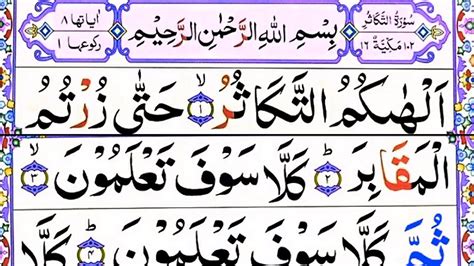 سُوْرَةُ التَّكَاثُرِ
١٠٢ مَكِّيَّةٌ ١٦
بِسْمِ اللهِ الرَّحْمٰنِ الرَّحِيْمِ
اٰيَاتُهَا ٨
رُكُوْعُهَا ١
اَلْهٰىكُمُ التَّكَاثُرُ ۙ﴿١﴾ حَتّٰى زُرْتُمُ
الْمَقَابِرَ ﴿٢﴾ كَلَّا سَوْفَ تَعْلَمُوْنَ ۙ﴿٣﴾
ثُمَّ كَلَّا سَوْفَ تَعْلَمُوْنَ ﴿٤﴾ كَلَّا